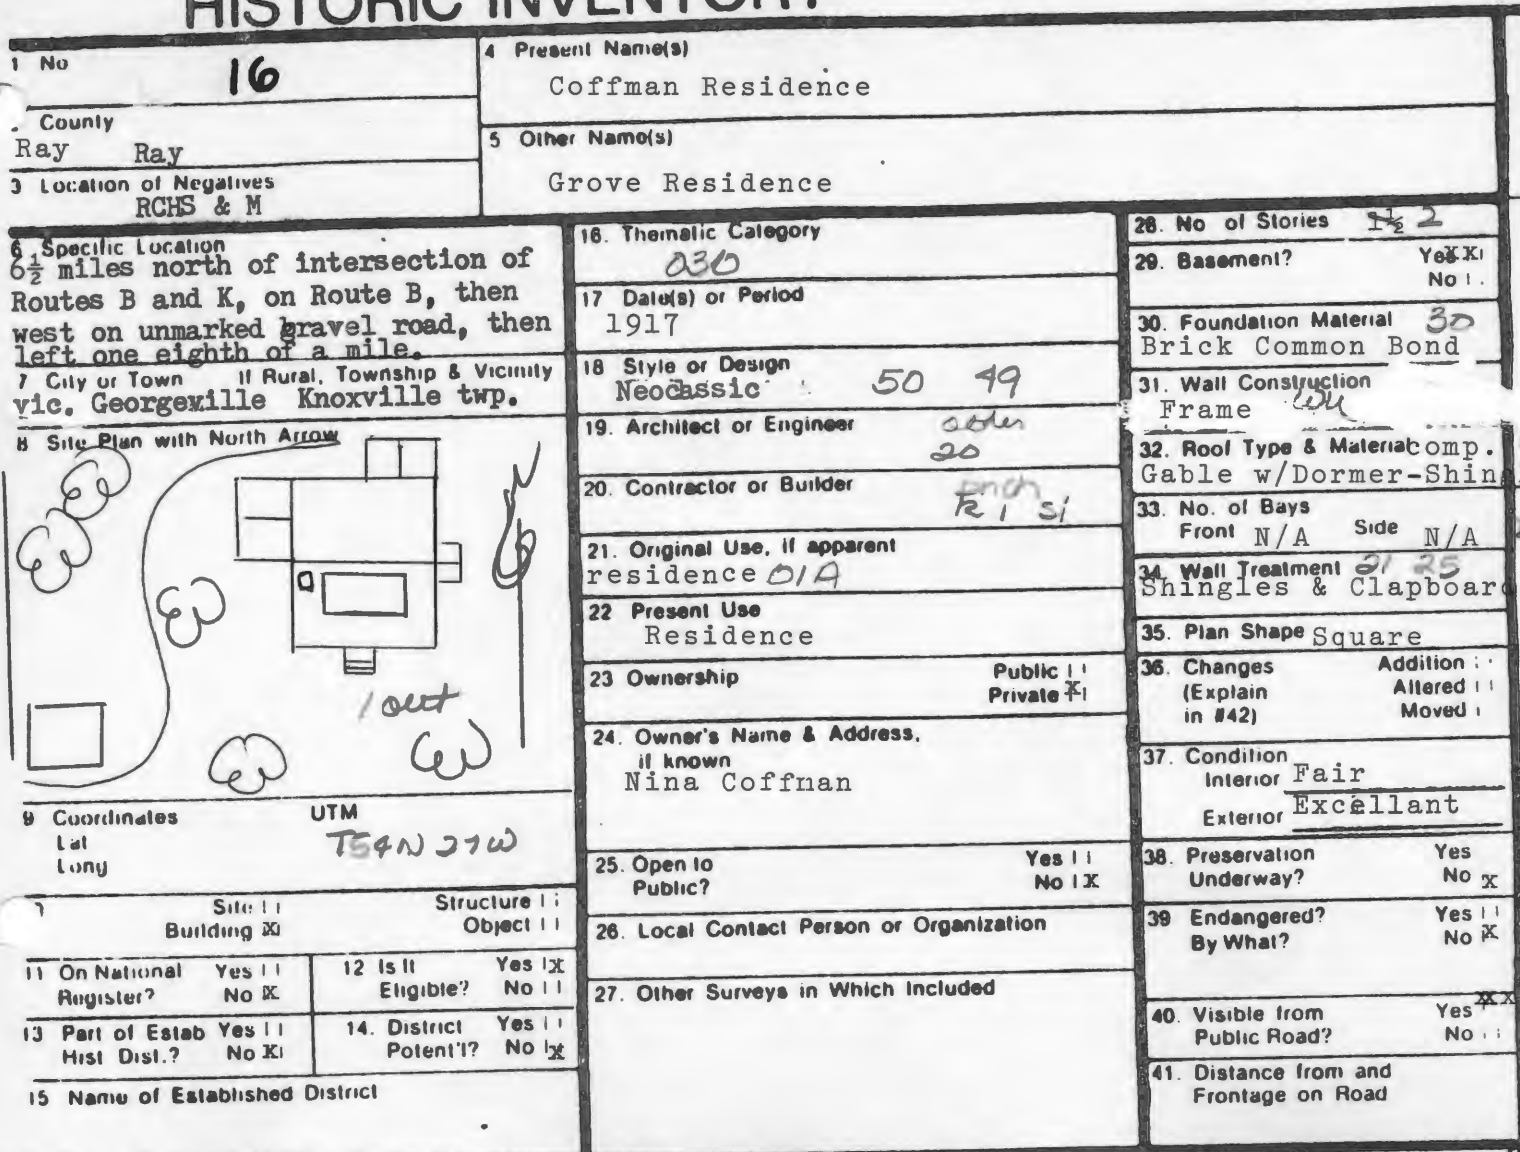 HISTORIC INVENTORY
1 No 16
County
Ray Ray
3 Location of Negatives
RCHS & M
4 Present Name(s)
Coffman Residence
5 Other Name(s)
Grove Residence
6 Specific Location
6½ miles north of intersection of
Routes B and K, on Route B, then
west on unmarked gravel road, then
left one eighth of a mile.
7 City or Town If Rural, Township & Vicinity
vic. Georgeville Knoxville twp.
8 Site Plan with North Arrow
1 out
9 Coordinates UTM
Lat
Long
T54N 27W
Site
Structure
Building X
Object
11 On National Register? Yes No X
12 Is It Eligible? Yes X No
13 Part of Estab Hist Dist.? Yes No X
14. District Potent'l? Yes No X
15 Name of Established District
16. Thematic Category
030
17 Date(s) or Period
1917
18 Style or Design
Neoclassic 50 49
19. Architect or Engineer
20
20. Contractor or Builder
21. Original Use, if apparent
residence 01A
22 Present Use
Residence
23 Ownership Public
Private X
24. Owner's Name & Address,
if known
Nina Coffman
25. Open to Yes
Public? No X
26. Local Contact Person or Organization
27. Other Surveys in Which Included
28. No of Stories 1½ 2
29. Basement? Yes XX
No
30. Foundation Material 30
Brick Common Bond
31. Wall Construction
Frame
32. Roof Type & Material comp.
Gable w/Dormer-Shin
33. No. of Bays
Front N/A Side N/A
34. Wall Treatment 21 25
Shingles & Clapboard
35. Plan Shape Square
36. Changes Addition
(Explain Altered
in #42) Moved
37. Condition
Interior Fair
Exterior Excellant
38. Preservation Yes
Underway? No X
39 Endangered? Yes
By What? No X
40. Visible from Yes XX
Public Road? No
41. Distance from and
Frontage on Road